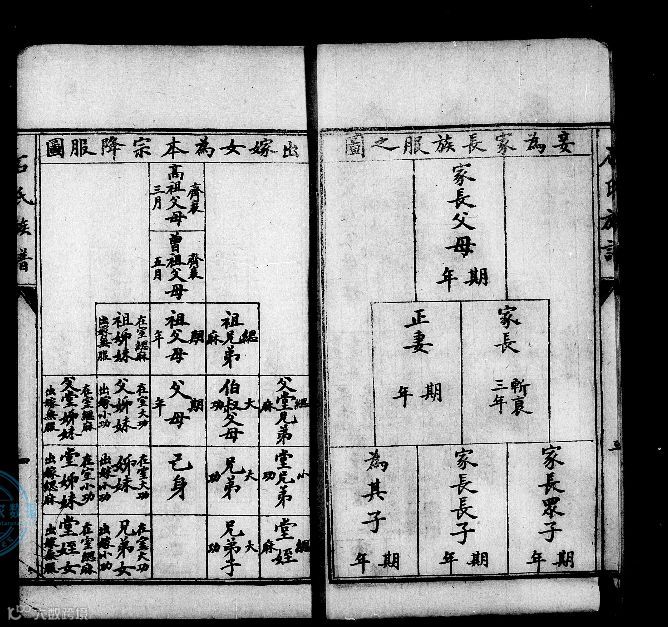 妾為家長族服之圖
家長父母
期年
家長
斬衰
三年
正妻
期年
家長眾子
期年
家長長子
期年
為其子
期年
出嫁女為本宗降服圖
高祖父母
齊衰
三月
曾祖父母
齊衰
五月
祖兄弟
緦麻
祖父母
期年
祖姊妹
在室緦麻
出嫁無服
父堂兄弟
緦麻
伯叔父母
大功
父母
期年
父姊妹
在室大功
出嫁小功
父堂姊妹
在室緦麻
出嫁無服
堂兄弟
小功
兄弟
大功
己身
姊妹
在室大功
出嫁小功
堂姊妹
在室小功
出嫁緦麻
堂姪
緦麻
兄弟子
大功
兄弟女
在室大功
出嫁小功
堂姪女
在室緦麻
出嫁無服
石氏族譜
一
六數跨境